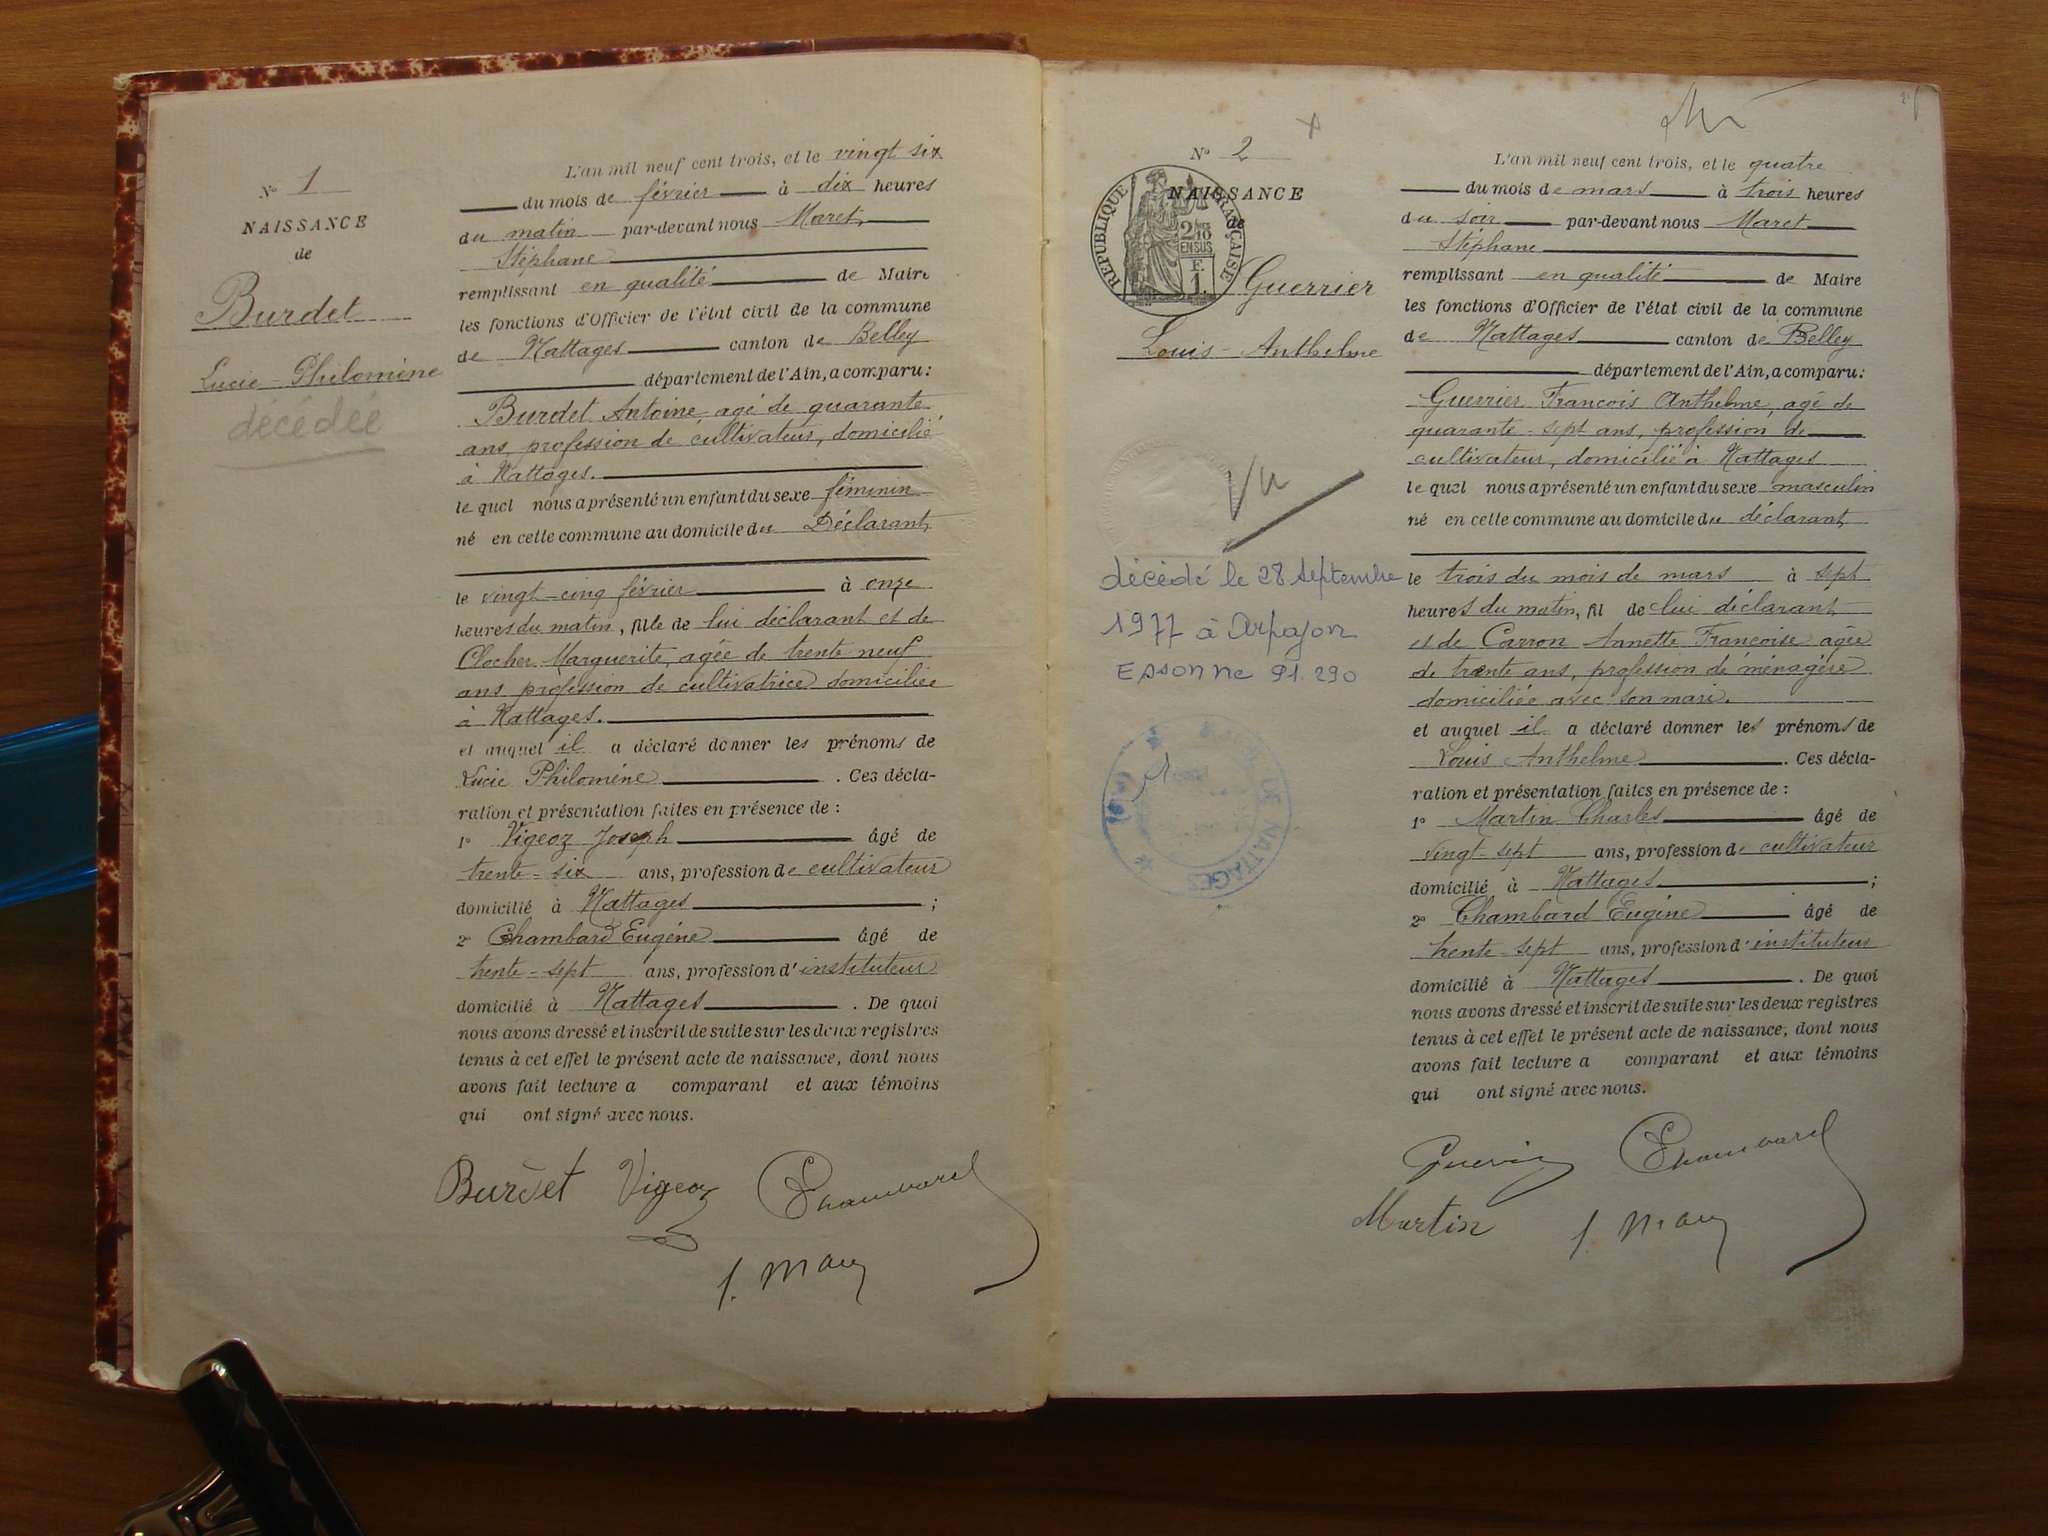 N° 1
NAISSANCE
de
Burdet
Lucie-Philomène
décédée
L'an mil neuf cent trois, et le vingt six
du mois de février à dix heures
du matin par-devant nous Maret,
Stéphane
remplissant en qualité de Maire
les fonctions d'Officier de l'état civil de la commune
de Nattages canton de Belley
département de l'Ain, a comparu :
Burdet Antoine, agé de quarante
ans, profession de cultivateur, domicilié
à Nattages.
le quel nous a présenté un enfant du sexe féminin
né en cette commune au domicile du Déclarant,
le vingt-cinq février à onze
heures du matin, fille de lui déclarant et de
Clocher Marguerite, agée de trente neuf
ans profession de cultivatrice domiciliée
à Nattages.
et auquel il a déclaré donner les prénoms de
Lucie Philomène . Ces décla-
ration et présentation faites en présence de :
1° Vigeoz Joseph âgé de
trente-six ans, profession de cultivateur
domicilié à Nattages ;
2° Chambard Eugène âgé de
trente-sept ans, profession d'instituteur
domicilié à Nattages . De quoi
nous avons dressé et inscrit de suite sur les deux registres
tenus à cet effet le présent acte de naissance, dont nous
avons fait lecture a comparant et aux témoins
qui ont signé avec nous.
Burdet Vigeoz Chambard
S. Maret
N° 2
NAISSANCE
de
RÉPUBLIQUE FRANÇAISE
2/10
EN SUS
F.
1.
Guerrier
Louis-Anthelme
Vu
décédé le 28 septembre
1977 à Arpajon
Essonne 91.290
DE NATTAGES
L'an mil neuf cent trois, et le quatre
du mois de mars à trois heures
du soir par-devant nous Maret
Stéphane
remplissant en qualité de Maire
les fonctions d'Officier de l'état civil de la commune
de Nattages canton de Belley
département de l'Ain, a comparu :
Guerrier François Anthelme, agé de
quarante-sept ans, profession de
cultivateur, domicilié à Nattages
le quel nous a présenté un enfant du sexe masculin
né en cette commune au domicile du déclarant,
le trois du mois de mars à sept
heures du matin, fil de lui déclarant
et de Carron Annette Françoise agée
de trente ans, profession de ménagère
domiciliée avec son mari.
et auquel il a déclaré donner les prénoms de
Louis Anthelme . Ces décla-
ration et présentation faites en présence de :
1° Martin Charles âgé de
vingt-sept ans, profession de cultivateur
domicilié à Nattages ;
2° Chambard Eugène âgé de
trente-sept ans, profession d'instituteur
domicilié à Nattages . De quoi
nous avons dressé et inscrit de suite sur les deux registres
tenus à cet effet le présent acte de naissance, dont nous
avons fait lecture a comparant et aux témoins
qui ont signé avec nous.
Guerrier Chambard
Martin S. Maret